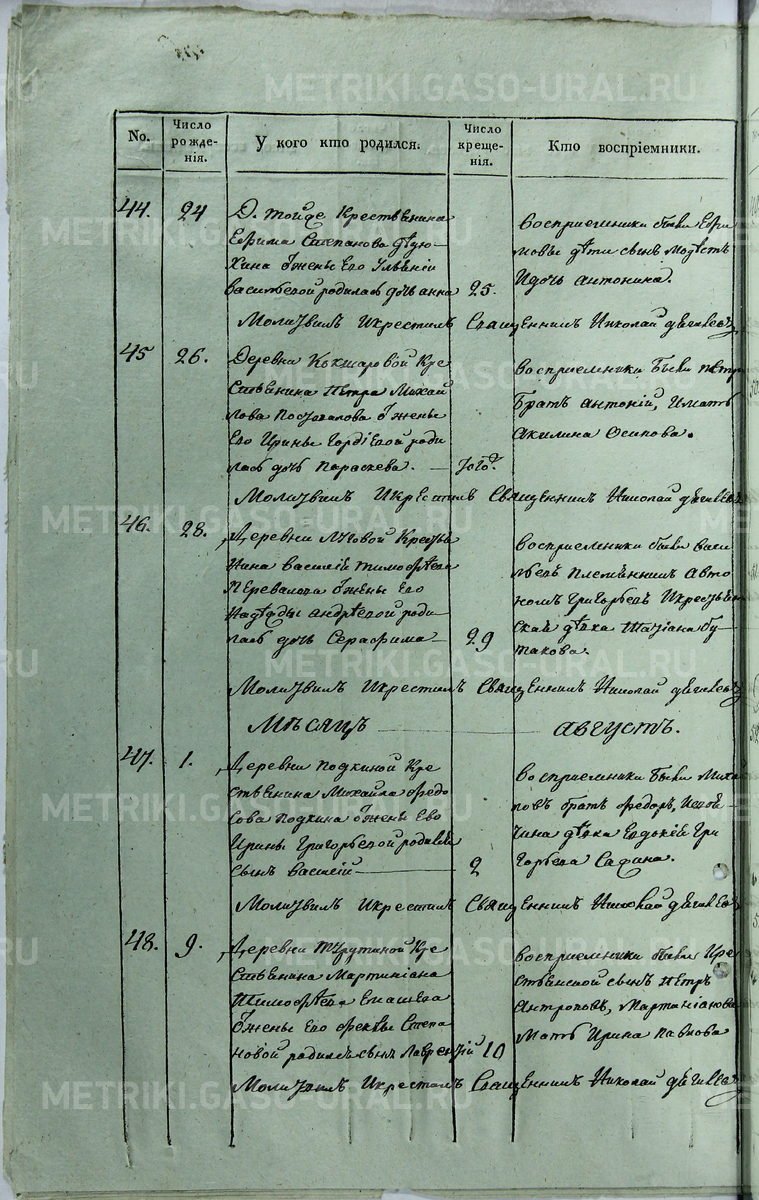 No.
Число рожде-нія.
У кого кто родился.
Число креще-нія.
Кто воспріемники.
44. 24
Д. Тойде Крестьянина
Ефима Степанова
Жены Его
Васильевой родилась дочь анна 25.
восприемники были Ефи
мовы дѣти сынъ Модестъ
И дочь антонина.
Молитвилъ Икрестилъ Священникъ Николай
45 26.
Деревни Кре
стьянина Петра Михай
лова жены
Его Ирины Гордіевой роди
лась дочь параскева. — Того.
восприемники Были петра
Братъ антоній, И мать
акилина Осипова.
Молитвилъ Икрестилъ Священникъ Николай
46. 28.
Деревни Луговой Кресть
янина василій тимофѣева
Перевалова жены Его
Надѣжды андрѣевой роди
лась дочь Серафима — 29
восприемники были васи
льевъ племянникъ авто
номъ григорьевъ Икрестьян
ская дѣвка Татіана бу-
такова.
Молитвилъ Икрестилъ Священникъ Николай
Мѣсяцъ августъ.
47. 1.
Деревни подкиной Кре
стьянина Михайла Федо
сова подкина жены Его
Ирины Григорьевой родился
сынъ василій 2
восприемники были Михай
ловъ братъ Федоръ,
дѣвка Евдокія Гри
горьева Сафина.
Молитвилъ Икрестилъ Священникъ Николай
48. 9.
Деревни Кре
стьянина Мартиніана
Тимофѣева
жены Его Феклы Степа
новой родился сынъ лаврентій 10
восприемники были Кре
стьянской сынъ Петръ
антроповъ, Мартиніанова
мать Ирина павлова
Молитвилъ Икрестилъ Священникъ Николай
METRIKI.GASO-URAL.RU